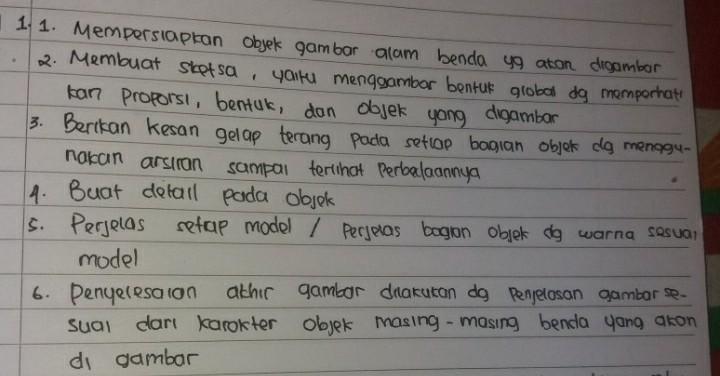 1. 1. Mempersiapkan objek gambar alam benda yg akan digambar
2. Membuat sketsa, yaitu menggambar bentuk global dg memperhati
kan proporsi, bentuk, dan objek yang digambar
3. Berikan kesan gelap terang pada setiap bagian objek dg menggu-
nakan arsiran sampai terlihat Perbelaannya
4. Buat detail pada objek
5. Perjelas setiap model / Perjelas bagian objek dg warna sesuai
model
6. Penyelesaian akhir gambar dilakukan dg Penjelasan gambar se-
suai dari karakter objek masing-masing benda yang akan
di gambar